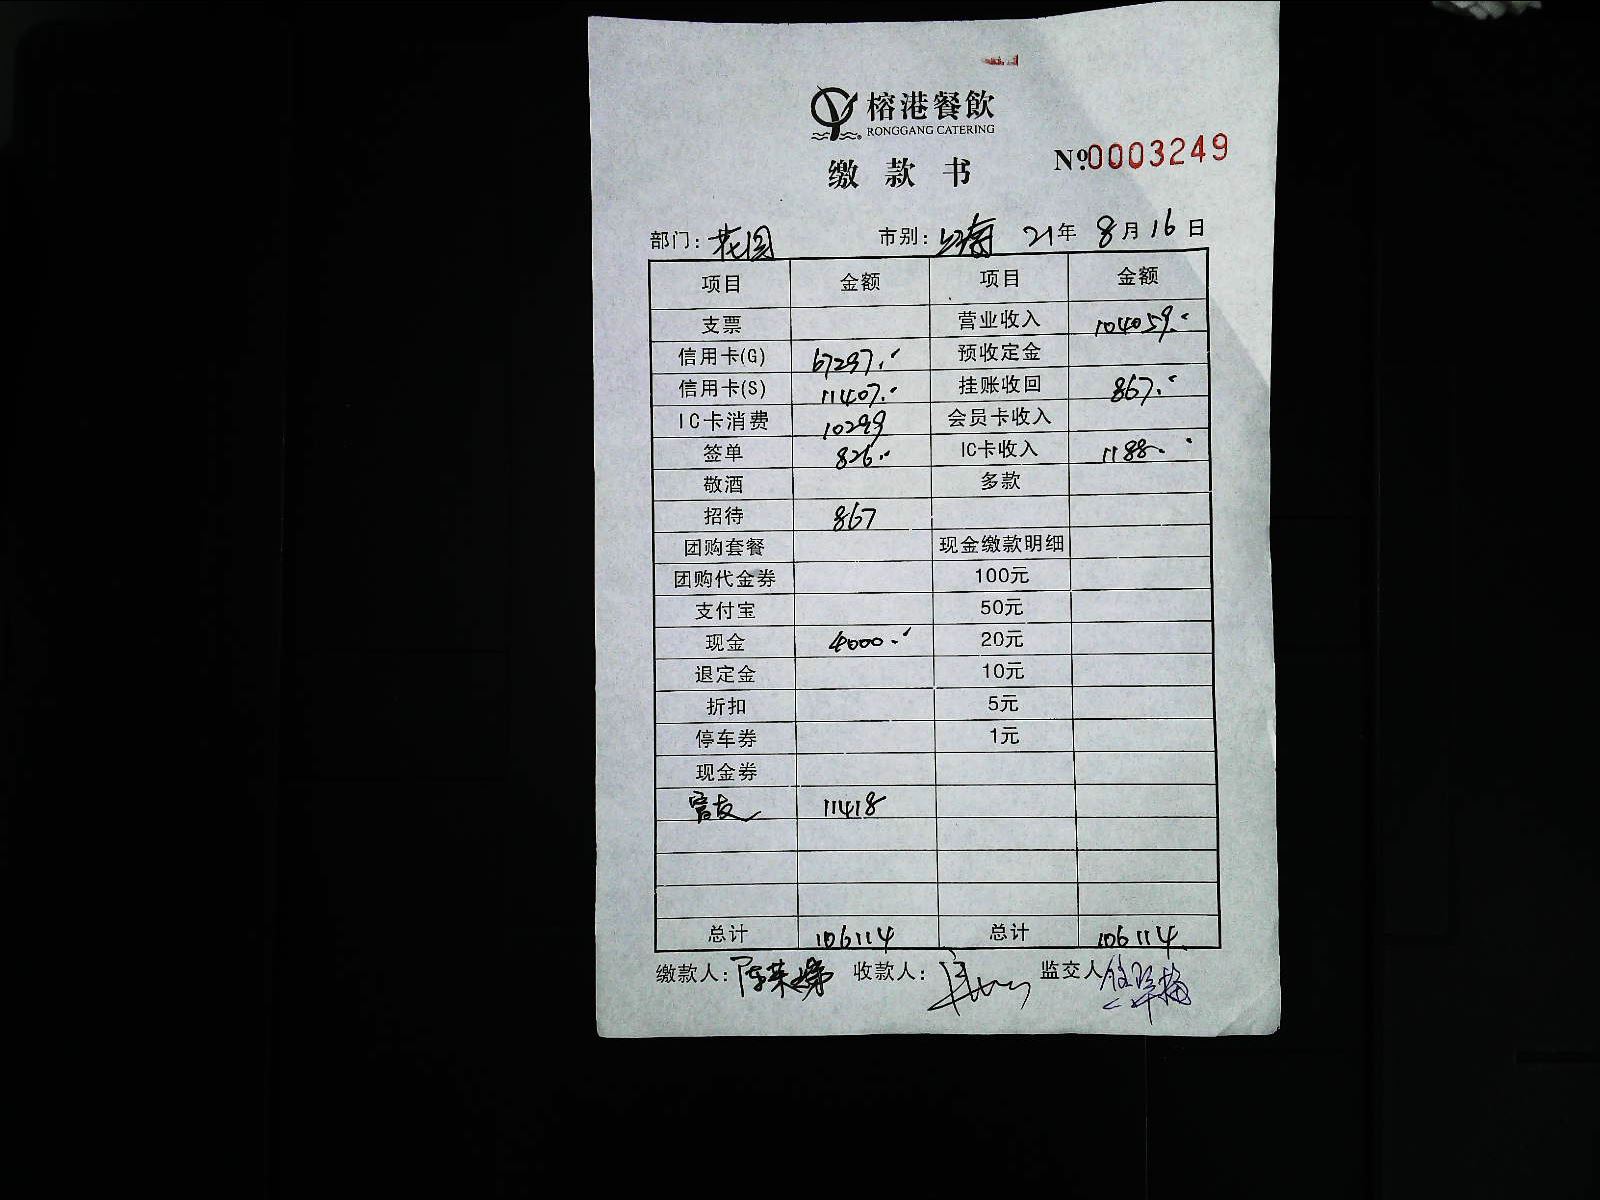 榕港餐飲
RONGGANG CATERING
缴款书 №0003249
部门: 花园 市别: 21年 8月16日
项目 金额 项目 金额
支票 营业收入 104059.-
信用卡(G) 67297.- 预收定金
信用卡(S) 11407.- 挂账收回 867.-
IC卡消费 10299 会员卡收入
签单 826.- IC卡收入 1188.-
敬酒 多款
招待 867
团购套餐 现金缴款明细
团购代金券 100元
支付宝 50元
现金 4000.- 20元
退定金 10元
折扣 5元
停车券 1元
现金券
11418
总计 106114 总计 106114.
缴款人: 收款人: 监交人